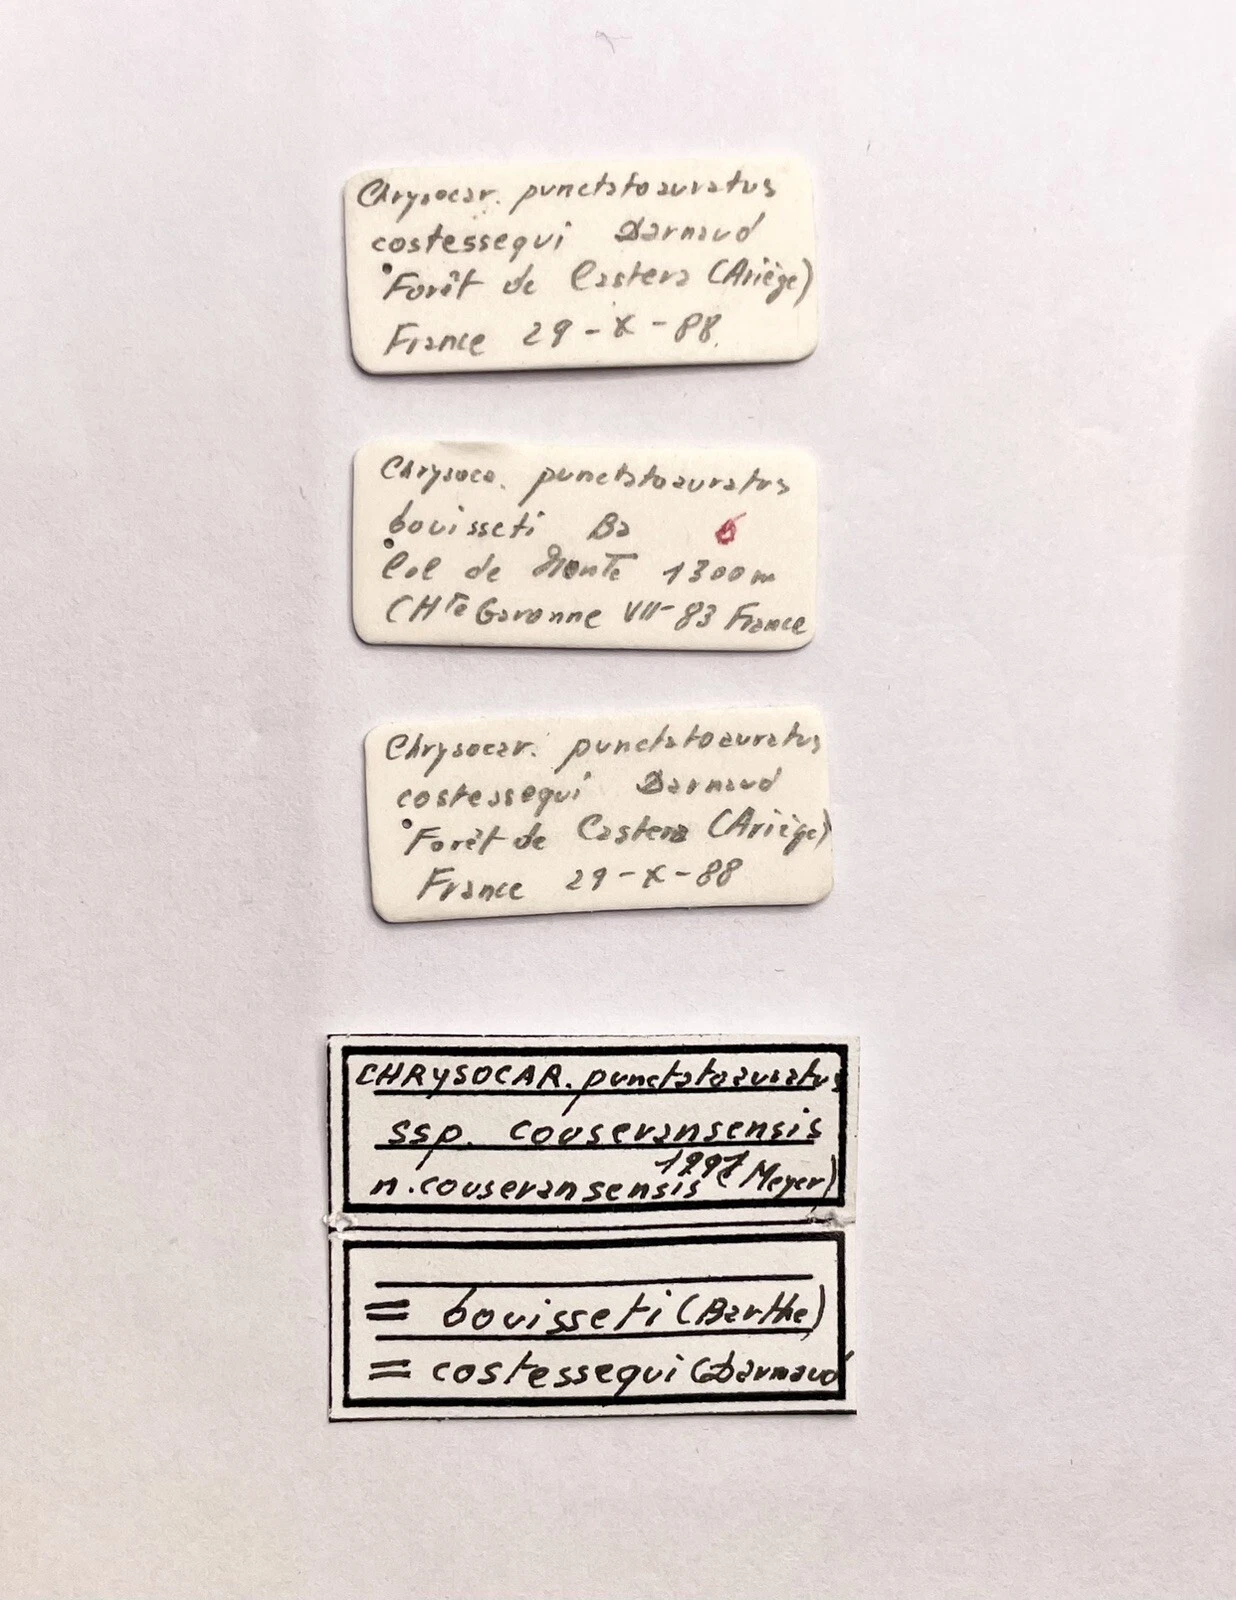 Chrysocar. punctatoauratus
costessequi Darnaud
Forêt de Castera (Ariège)
France 29-X-88.
Chrysoca. punctatoauratus
bouisseti Ba
Col de Mente 1300m
(Hte Garonne VII-83 France
Chrysocar. punctatoauratus
costessequi Darnaud
Forêt de Castera (Ariège)
France 29-X-88
CHRYSOCAR. punctatoauratus
ssp. couseransensis
n. couseransensis 1997 (Meyer)
= bouisseti (Barthe)
= costessequi (Darnaud